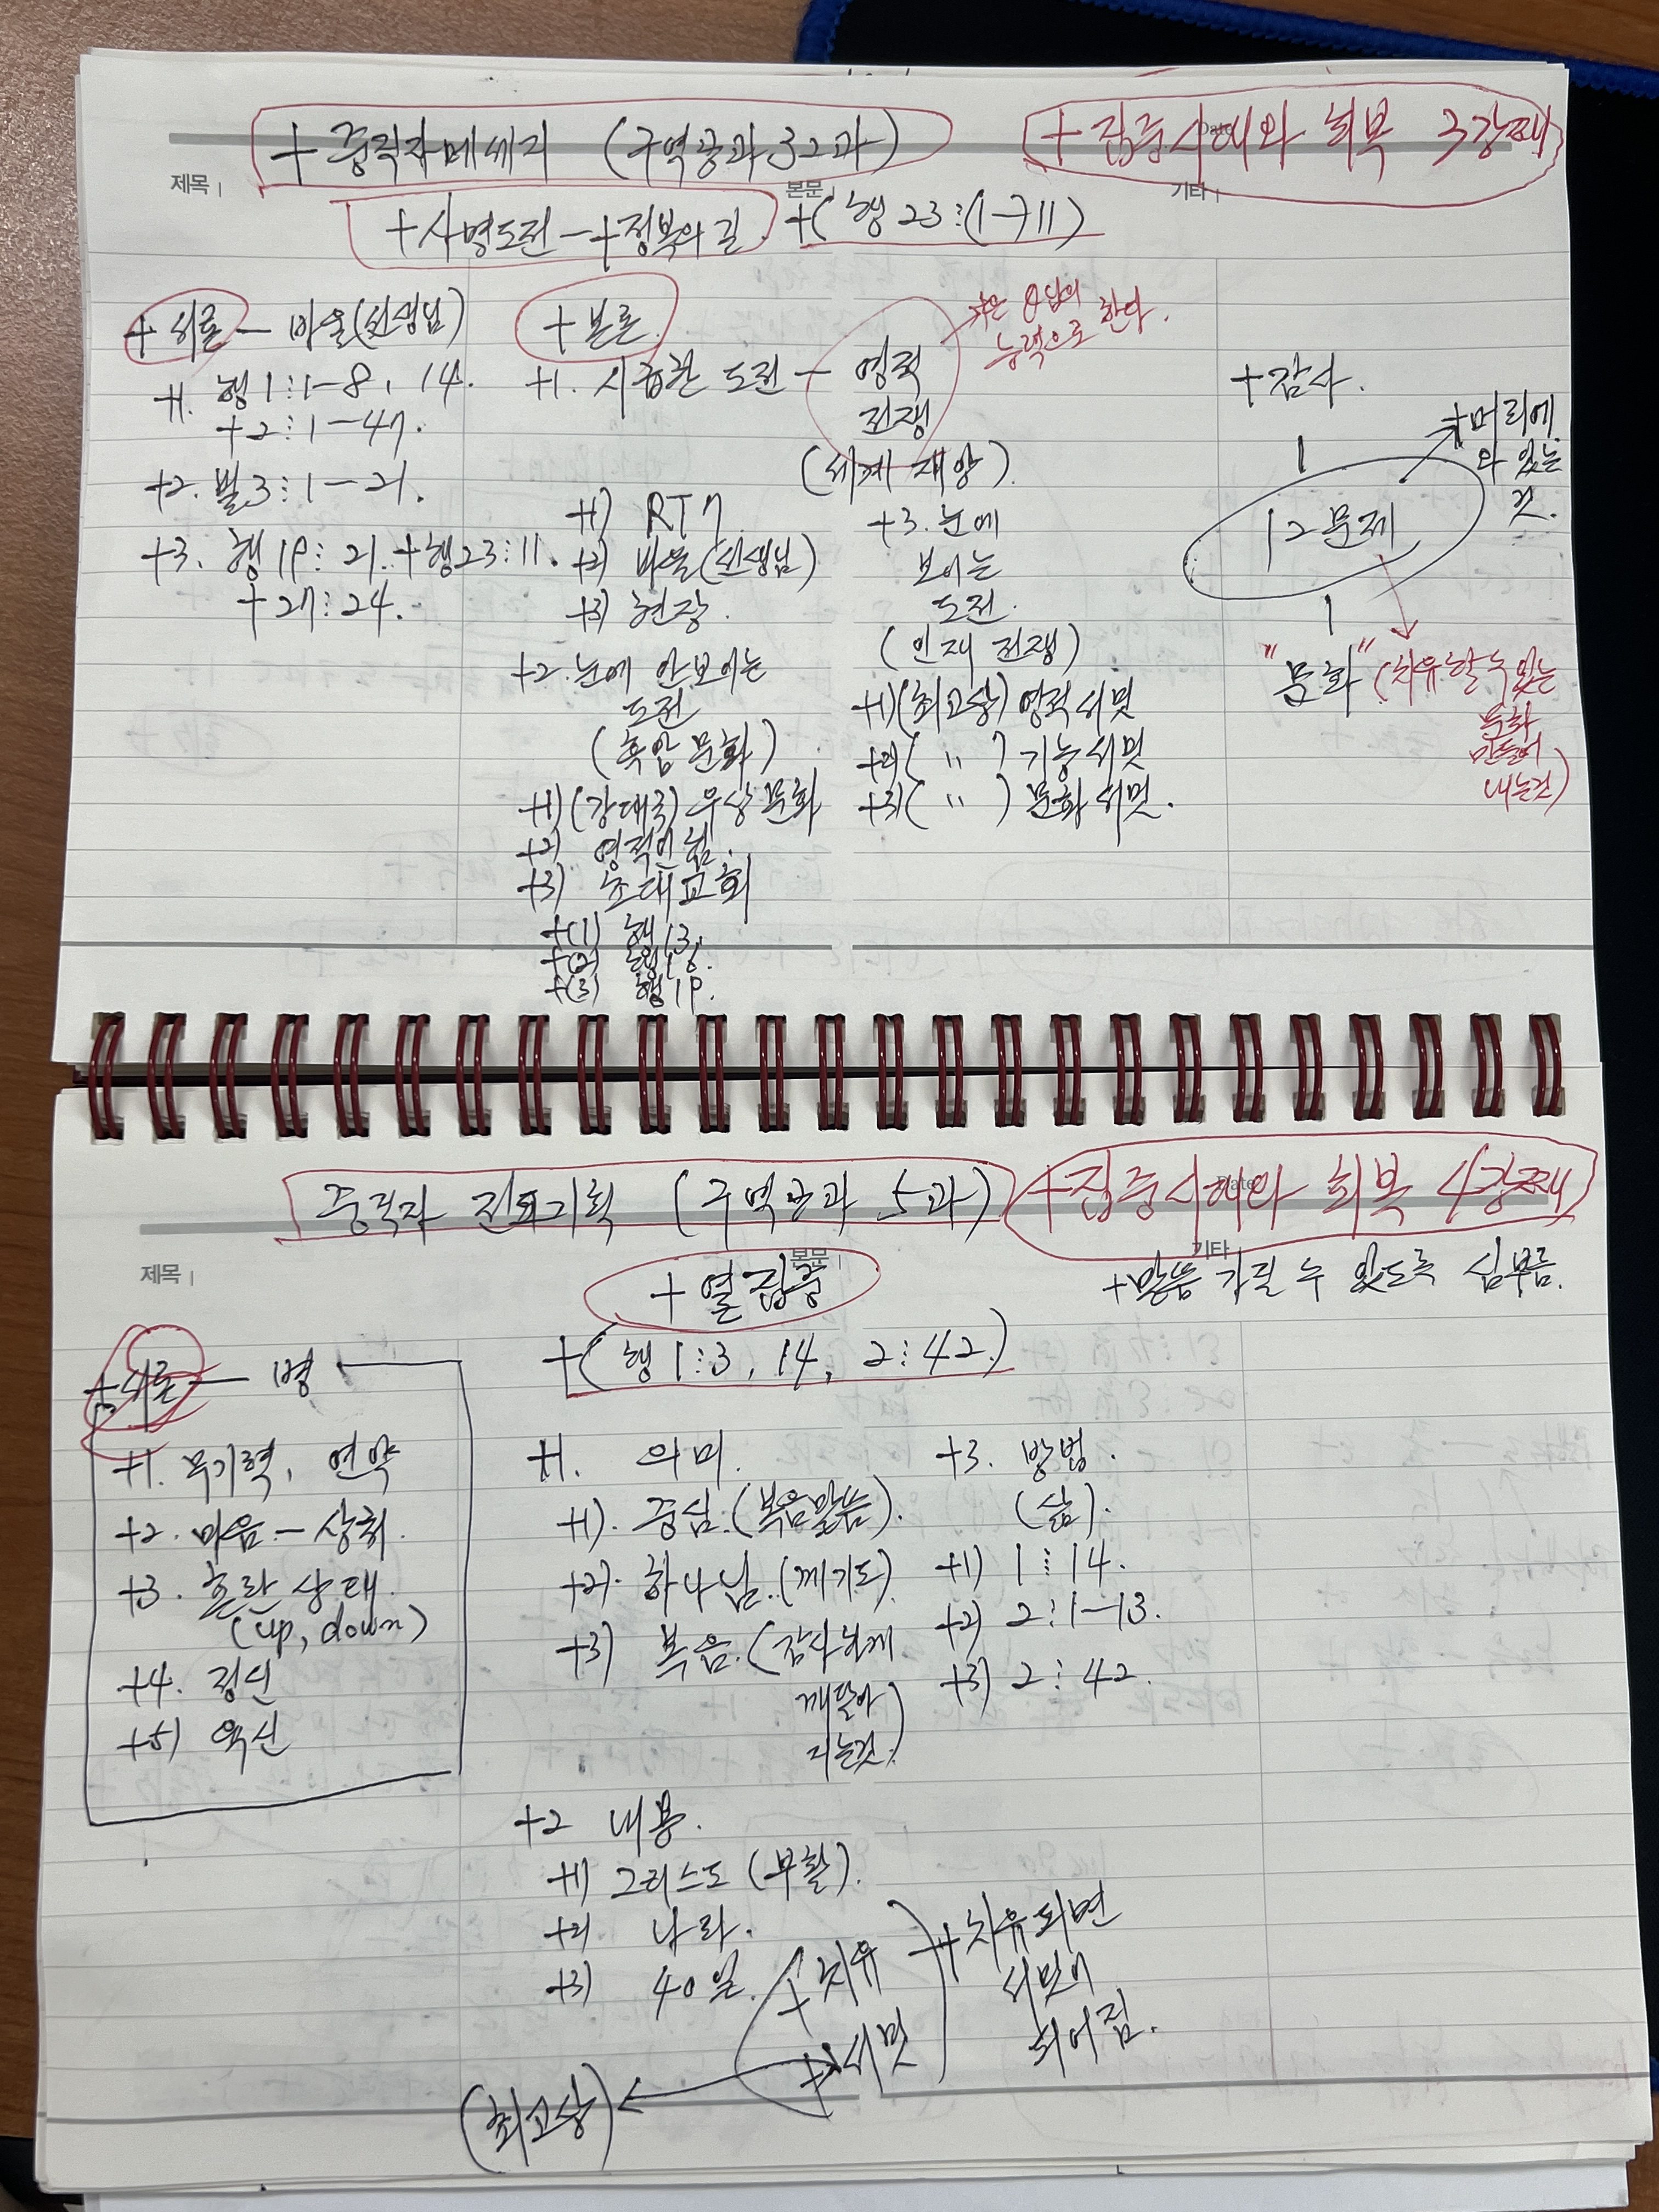 +중직자메세지 (구역공과32과)
+집중시대와 회복 3강째
Date
제목 |
본문 |
기타 |
+사명도전-+정복의 길 +(행23:(1→11)
+서론 - 바울(선생님)
+1. 행1:1-8, 14.
+2:1-47.
+2. 빌3:1-21.
+3. 행19:21. +행23:11.
+27:24.
+본론.
+1. 시급한 도전 - 영적
전쟁
(세계 재앙).
능력으로 한다.
+1) RT7
+2) 바울(선생님)
+3) 현장.
+2. 눈에 안보이는
도전
(흑암문화)
+1)(강대국) 우상문화
+2) 영적인 힘.
+3) 초대교회
+(1) 행13.
+(2) 행16.
+(3) 행19.
+3. 눈에
보이는
도전.
(인재 전쟁)
+1)(최고상) 영적서밋
+2)( " ) 기능서밋
+3)( " ) 문화서밋.
+감사.
12문제
+머리에
와 있는
것.
"문화" (치유할 수 있는
문화
만들어
내는것)
중직자 전도기획 (구역공과 5과)
+집중시대와 회복 4강째
Date
제목 |
본문 |
기타 |
+열집중
+말씀 각인 될 수 있도록 심부름.
+(행1:3, 14, 2:42.)
+서론 - 병
+1. 무기력, 연약
+2. 마음 - 상처.
+3. 혼란 상태.
(up, down)
+4. 정신
+5) 육신
+1. 의미.
+1). 중심.(복음말씀).
+2). 하나님.(께기도).
+3) 복음.(감사하게
깨달아
지는것.)
+2 내용.
+1) 그리스도 (부활).
+2) 나라.
+3) 40일.
+3. 방법.
(삶).
+1) 1:14.
+2) 2:1-13.
+3) 2:42.
+치유
+서밋
+치유되면
서밋이
되어짐.
(최고상)